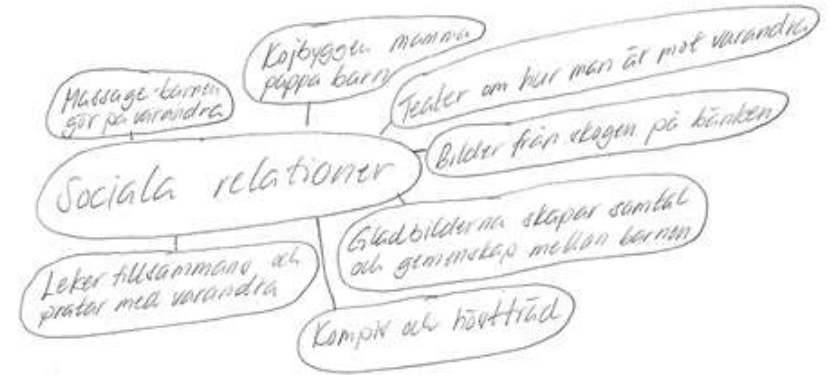 Kojbyggen mamma
pappa barn
Teater om hur man är mot varandra
Massage-barnen
gör på varandra
Bilder från skogen på bänken
Sociala relationer
Gladbilderna skapar samtal
och gemenskap mellan barnen
Leker tillsammans och
pratar med varandra
Kompis och